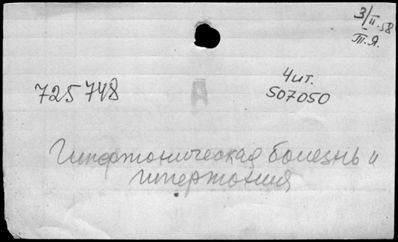 3/II.58
III.Я.
725748
Чит.
507050
А
Гипертоническая болезнь и
гипертония